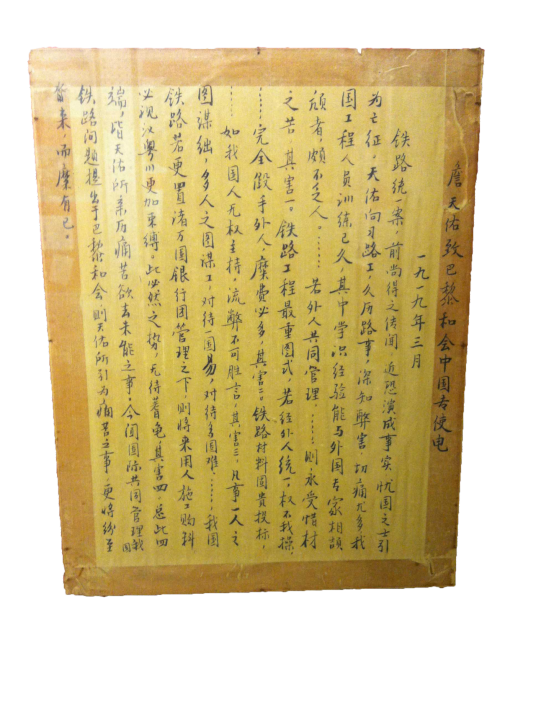 詹天佑致巴黎和会中国专使电
一九一九年三月
铁路统一案，前尚得之传闻，近恐演成事实，忧国之士引
为亡征，天佑向习路工，久历路事，深知弊害，切痛尤多。我
国工程人员训练已久，其中学识经验能与外国专家相颉
颃者颇不乏人。……若外人共同管理，……则永受惜材
之苦，其害一。铁路工程最重图式，若经外人统一，权不我操，
……完全假手外人，糜费必多，其害二。铁路材料图贵投标，
……如我国人无权主持，流弊不可胜言，其害三，凡事一人之
图谋绌，多人之图谋工，对待一国易，对待多国难，……我国
铁路若更置诸万国银行团管理之下，则将来用人施工购料
必视汉粤川更加束缚。此必然之势，无待蓍龟，其害四，总此四
端，皆天佑所亲历痛苦欲去未能之事。今闻国际共同管理我国
铁路问题提出于巴黎和会，则天佑所引为痛苦之事，更将纷至
沓来而靡有已。